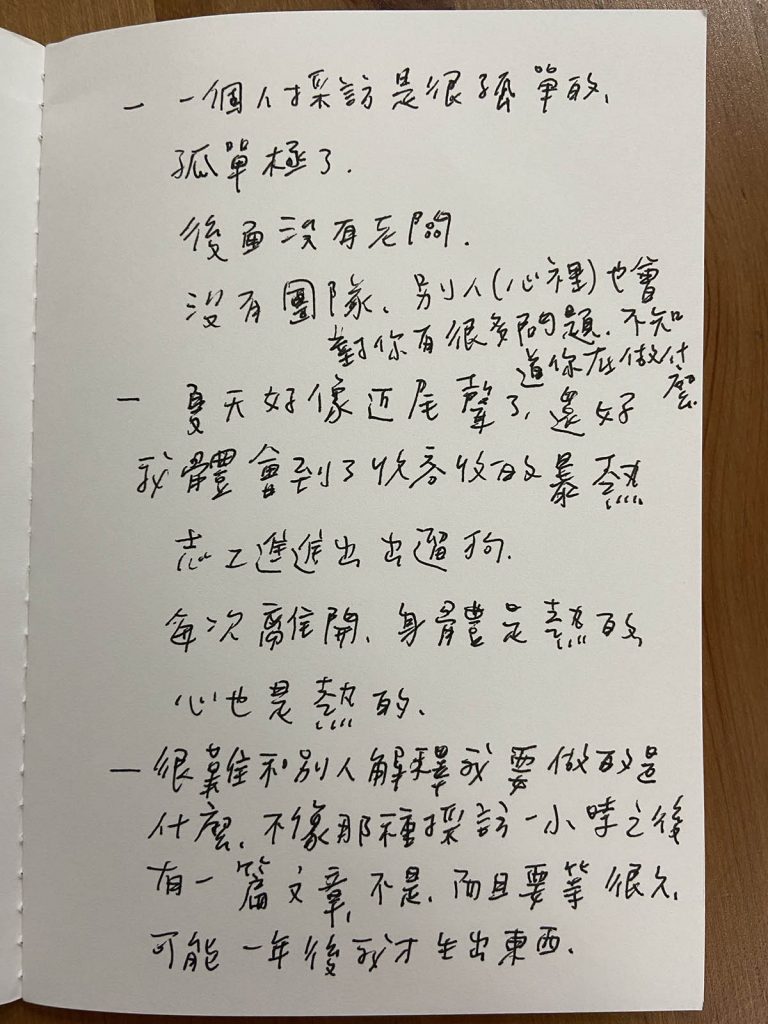 — 一個人採訪是很孤單的、
孤單極了.
後面沒有老闆.
沒有團隊、別人(心裡)也會
對你有很多問題、不知
道你在做什
麼
— 夏天好像近尾聲了,還好
我體會到了收容收的暴熱
志工進進出出遛狗.
每次離開、身體是熱的
心也是熱的.
— 很難和別人解釋我要做的是
什麼、不像那種採訪一小時之後
有一篇文章,不是、而且要等很久、
可能一年後我才生出東西.